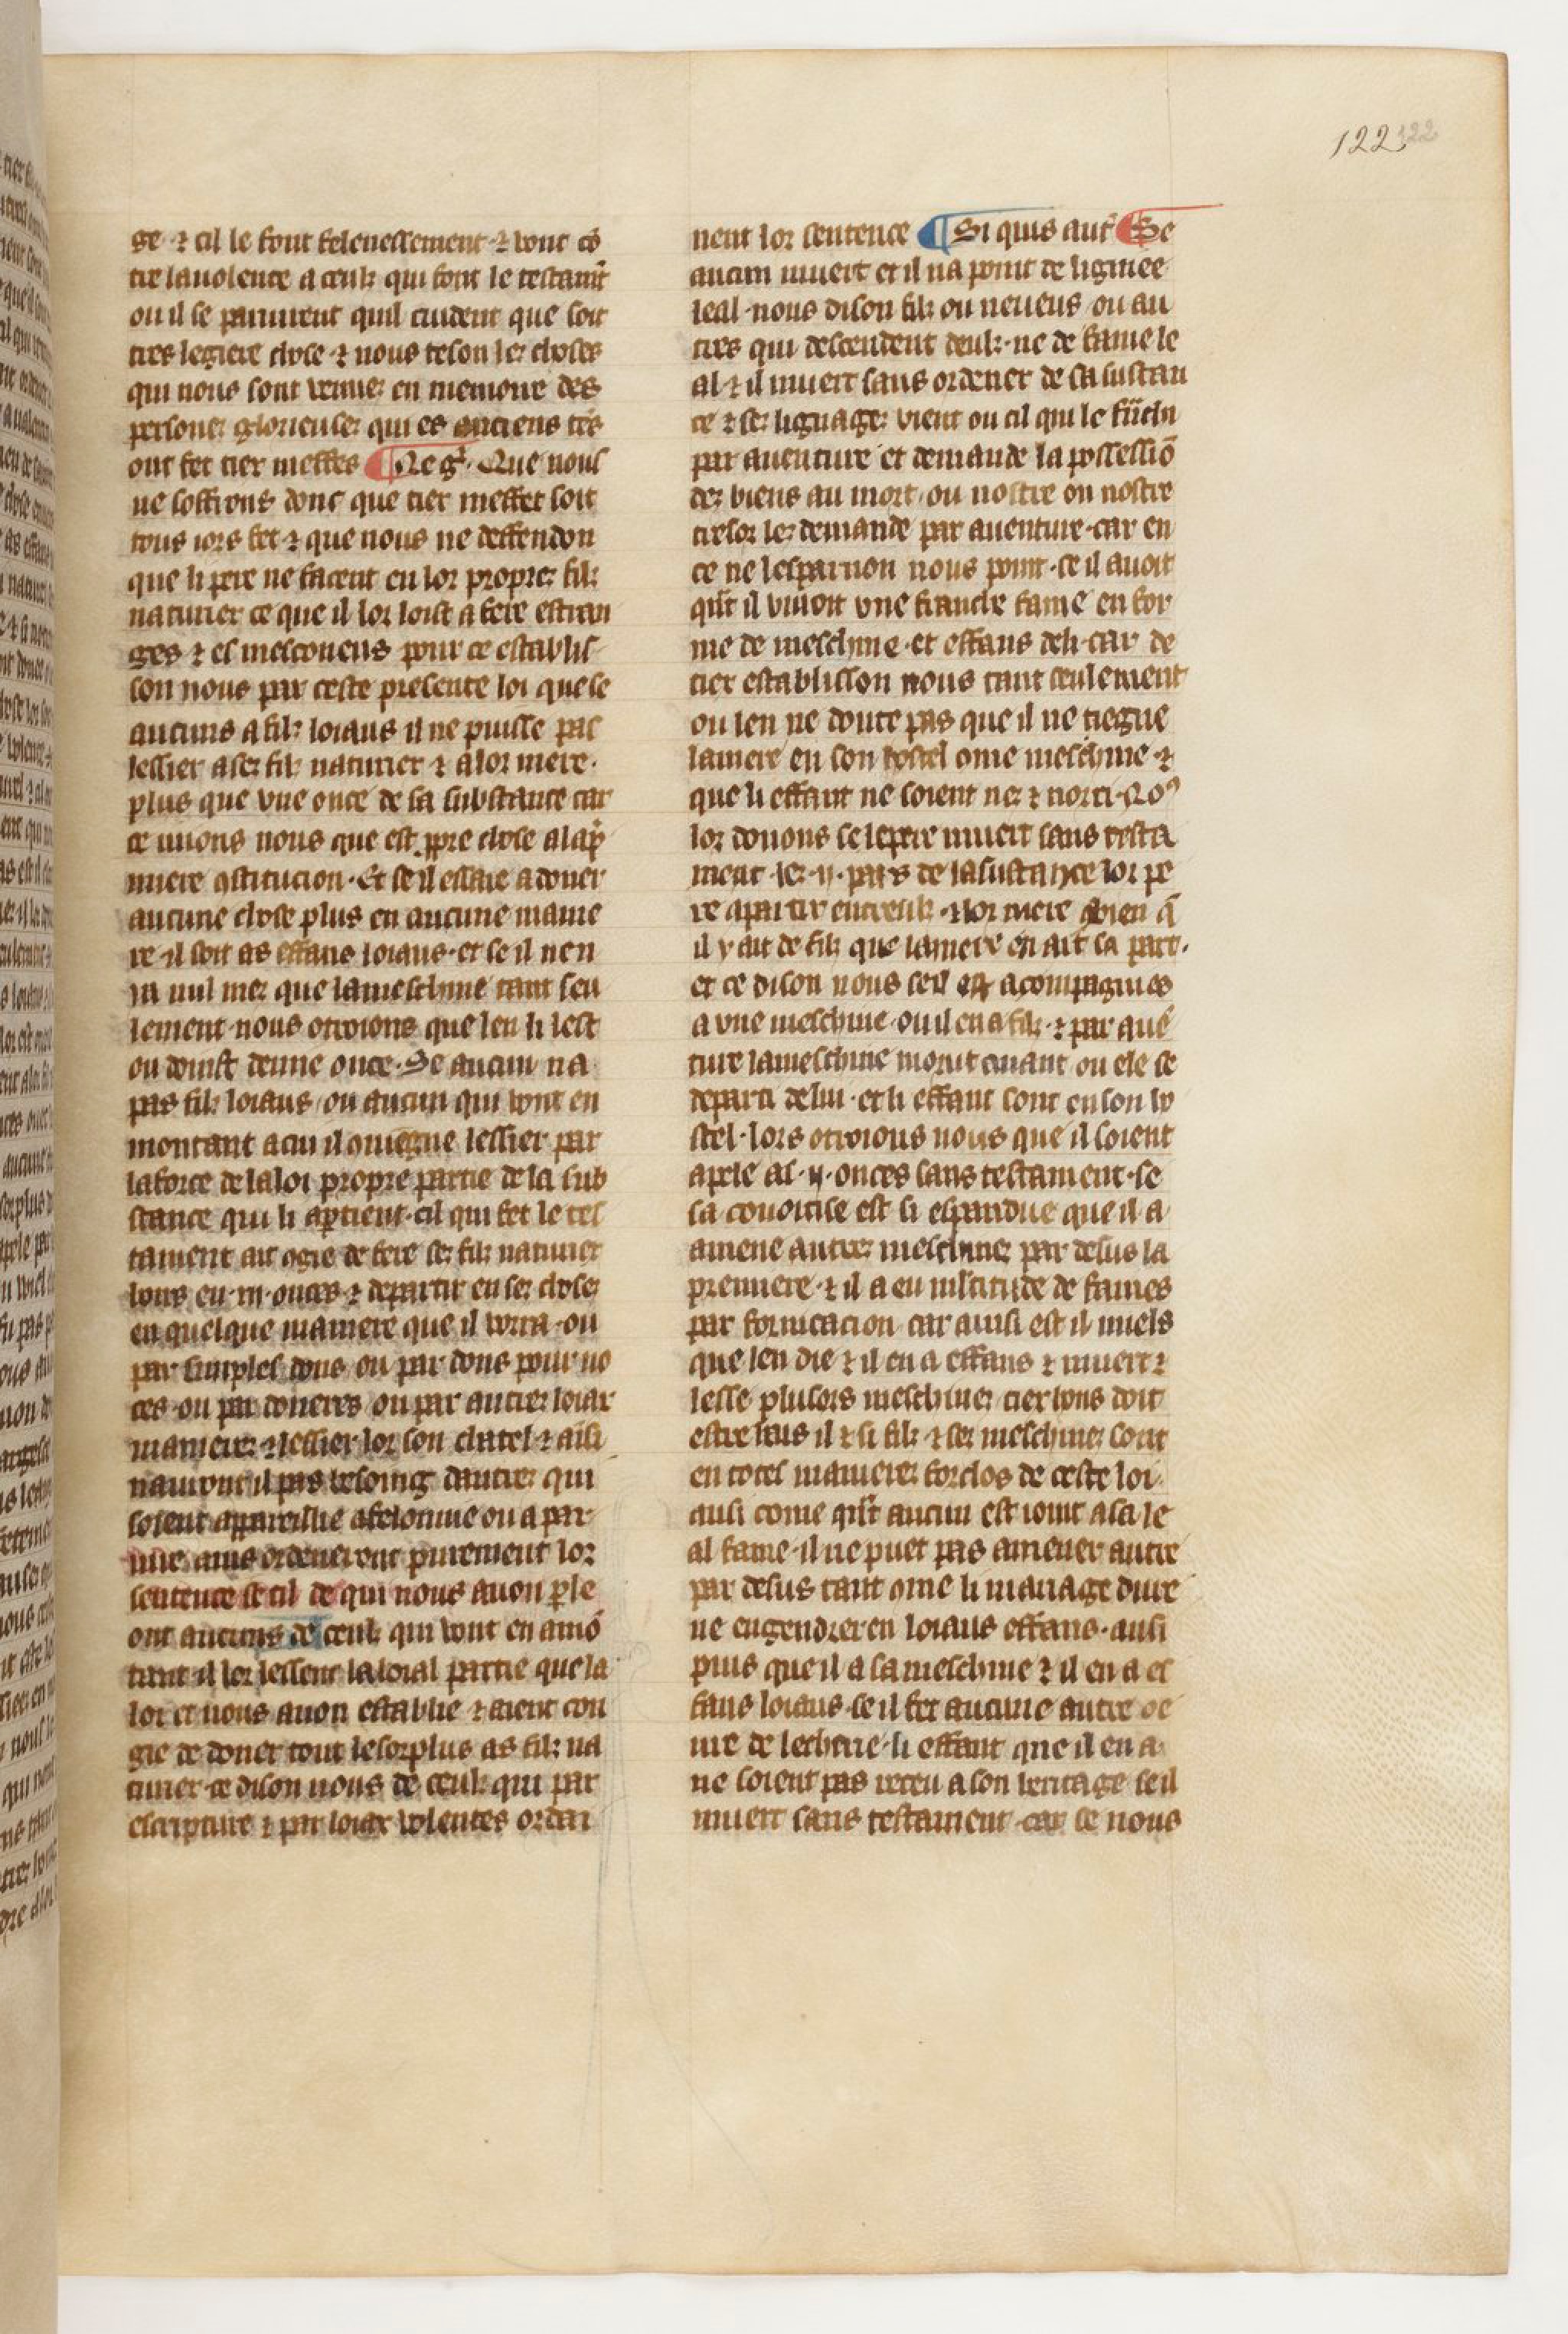 122 122
ge ⁊ cil le font feleneſſement ⁊ vont cō
tre la volente a ceulz qui font le teſtam̄t
ou il ſe pariurent quil cuident que ſoit
tres legiere choſe ⁊ nous teſon lez choſes
qui nous ſont venuez en memoire des
perſonez glorieuſez qui es anciens tēs
ont fet tier meffes ¶ Neḡ. Que nouſ
ne ſoffrons donc que tier meffet ſoit
tous iors fet ⁊ que nous ne deffendon
que li pere ne facent en lor proprez filz
naturier ce que il lor loiſt a fere eſtran
ges ⁊ eſ meſconeus pour ce eſtabliſ
ſon nous par ceſte preſente loi que ſe
aucuns a filz loiaus il ne puiſſe paſ
leſſier a ſez filz naturier ⁊ a lor mere.
plus que vne once de ſa ſubſtance car
ce uuons nous que eſt ꝓpre choſe a la p̄
miere ꝯſtitucion. Et ſe il eſſaie a doner
aucune choſe plus en aucune manie
re il ſoit as effans loiaus. et ſe il nen
ia nul mez que la meſchine tant ſeu
lement nous otroions que len li leſt
ou doinſt demie once. Se aucun na
pas filz loiaus ou aucun qui vont en
montant a cui il ꝯuiegne leſſier par
la force de la loi propre partie de ſa ſub
ſtance qui li apͥtient. cil qui fet le teſ
tament ait ꝯgie de fere ſez filz naturier
hoirs en .iii. onces ⁊ departir en ſez choſez
en quelque maniere que il vorra. ou
par ſimpleſ dons. ou par dons pour no
ces. ou par doueres ou par autrez loiax
manierez ⁊ leſſier lor ſon chatel ⁊ aiſi
nauront il pas beſoing dautrez qui
ſoient appareillie a felonnie ou a par
iure. ains ordeneront purement lor
ſentence ſe cil de qui nous auon ꝑle
ont aucuns de ceulz qui vont en amō
tant il lor leſſent la loial partie que la
loi et nous auon eſtablie ⁊ aient con
gie de doner tout le ſorplus as filz na
turier. ce diſon nous de ceulz qui par
eſcripture ⁊ par loiax volentes ordei
nent lor ſentence ¶ Si quis aut̄ ¶ Se
aucun muert et il na point de lignee
leal. nous diſon filz ou neueus ou au
tres qui deſcendent deulz. ne de fame le
al ⁊ il muert ſans ordener de ſa ſuſtan
ce ⁊ ſez lignagez vient ou cil qui le frāchi
par auenture et demande la poſſeſſiō
dez biens au mort. ou noſtre ou noſtre
treſor lez demande par auenture. car en
ce ne leſparnon nous point. ſe il auoit
qn̄t il viuoit vne franche fame en for
me de meſchine. et effans deli. car de
tier eſtabliſſon nous tant ſeulement
ou len ne doute pas que il ne tiegne
la mere en ſon hoſtel ꝯme meſchine ⁊
que li effant ne ſoient nez ⁊ norri. Noꝰ
lor donons ſe le pere muert ſans teſta
ment lez .ii. pars de la ſuſtance lor pe
re a partir entreulz. ⁊ lor mere ꝯbien q̄
il y ait de filz que la mere en ait ſa part.
et ce diſon nous ſeil eſt acompagnies
a vne meſchine. ou il en a filz. ⁊ par auē
ture la meſchine morut auant ou ele ſe
departi de lui. et li effant ſont en ſon ho
ſtel. lors otroions nous que il ſoient
apele aſ .ii. onces ſans teſtament. ſe
ſa couoitiſe eſt ſi eſpandue que il a
amene autrez meſchinez par deſus la
premiere. ⁊ il a eu ml̄titude de fames
par fornicacion. car auiſi eſt il miels
que len die ⁊ il en a effans ⁊ muert ⁊
leſſe pluſors meſchinez tier hons doit
eſtre haus il ⁊ ſi filz ⁊ ſez meſchinez ſont
en toteſ manierez forclos de ceſte loi.
auſi come qn̄t aucun eſt ioint a ſa le
al fame. il ne puet pas amener autre
par deſus tant ꝯme li mariage dure
ne engendrer en loiaus effans. auſi
puis que il a ſa meſchine ⁊ il en a ef
fans loiaus. ſe il fet aucune autre oe
ure de lecherie. li effant que il en a
ne ſoient pas receu a ſon heritage ſeil
muert ſans teſtament. car ſe nous